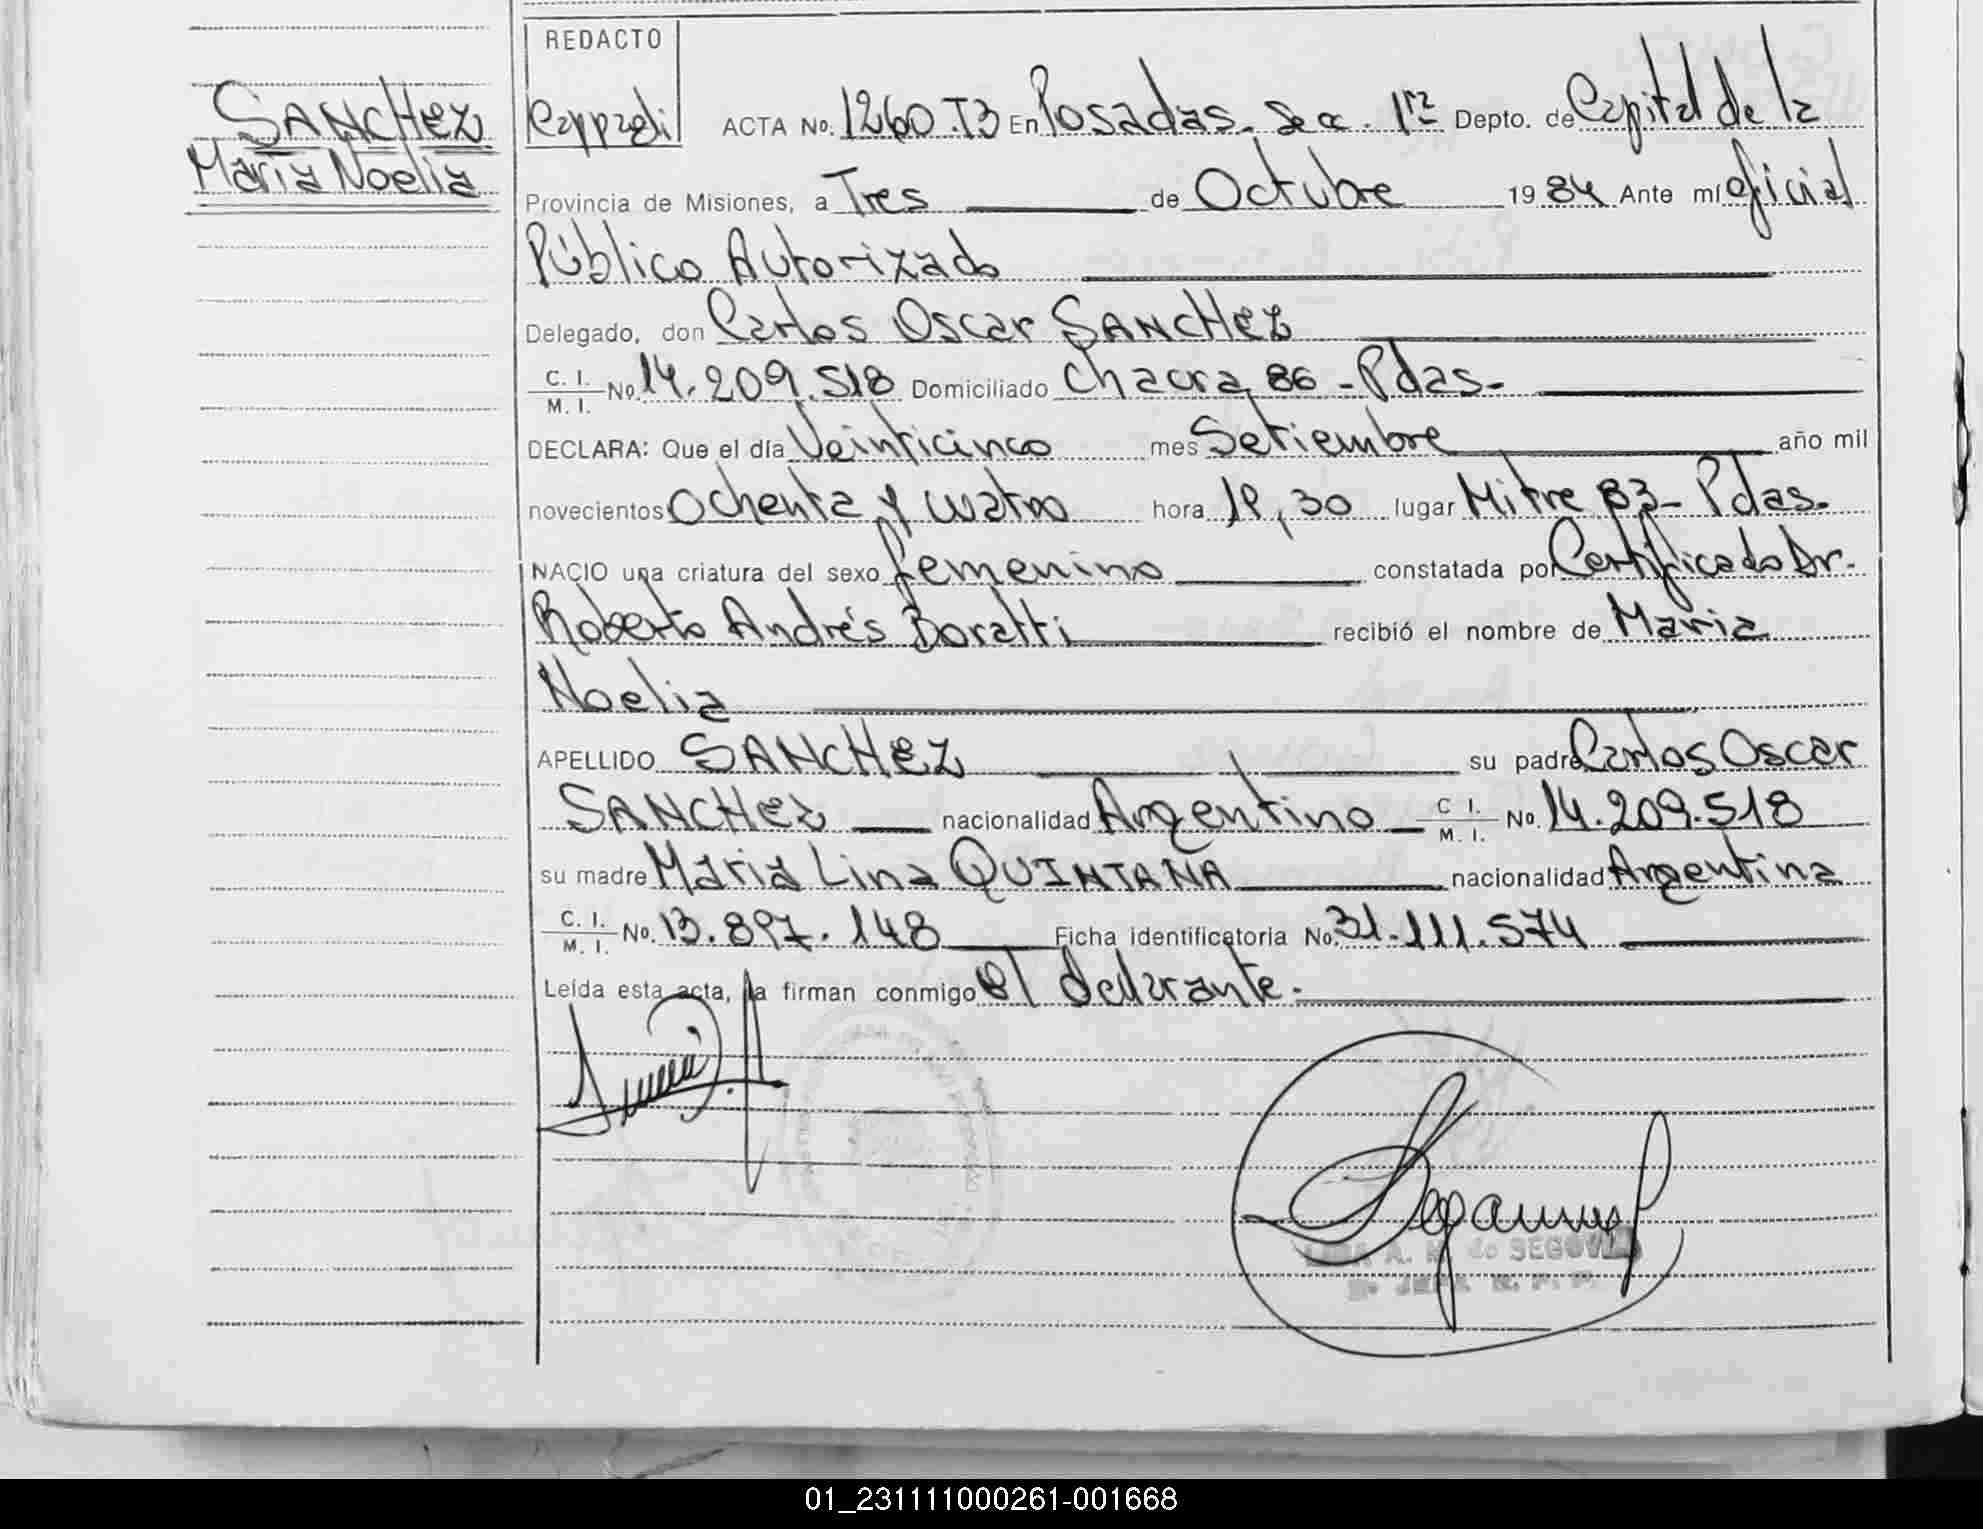 REDACTO
SANCHEZ
Maria Noelia
ACTA No. 1260.T3 En Posadas. Sec. 1ra Depto. de Capital de la
Provincia de Misiones, a Tres de Octubre 1984 Ante mí Oficial
Público Autorizado
Delegado, don Carlos Oscar SANCHEZ
C. I. / M. I. No. 14.209.518 Domiciliado Chacra 86 - Pdas-
DECLARA: Que el día Veinticinco mes Setiembre año mil
novecientos Ochenta y cuatro hora 19,30 lugar Mitre 83- Pdas.
NACIO una criatura del sexo femenino constatada por Certificado Dr.
Roberto Andrés Boratti recibió el nombre de Maria
Noelia
APELLIDO SANCHEZ su padre Carlos Oscar
SANCHEZ nacionalidad Argentino C I. / M. I. No. 14.209.518
su madre Maria Lina QUINTANA nacionalidad Argentina
C. I. / M. I. No. 13.897.148 Ficha identificatoria No. 31.111.574
Leída esta acta, la firman conmigo el declarante.
A. M. de SEGOVIA
01_231111000261-001668